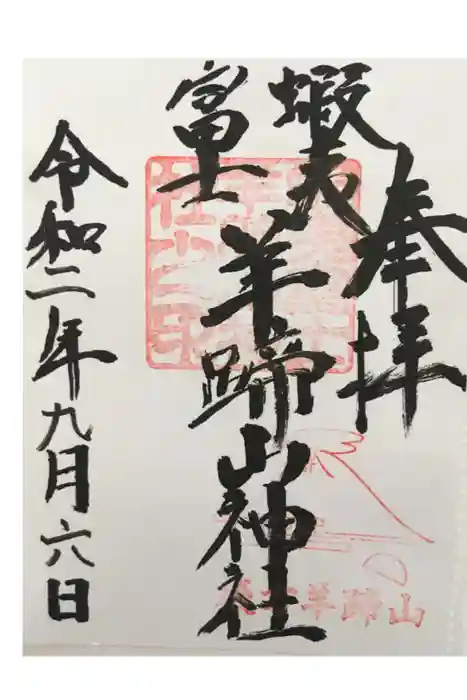 奉拝
蝦夷
富士
羊蹄山神社
令和二年九月六日